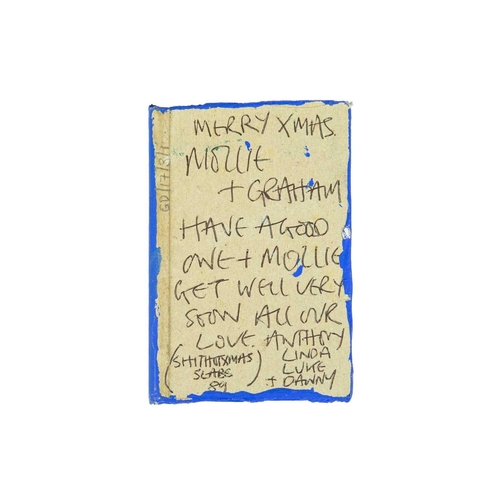 MERRY XMAS.
MOLLIE
+ GRAHAM
HAVE A GOOD
ONE + MOLLIE
GET WELL VERY
SOON ALL OUR
LOVE. ANTHONY
LINDA
LUKE
+ DANNY
( XMAS
89 )